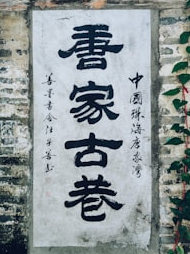 中國珠海唐家灣
唐家古巷